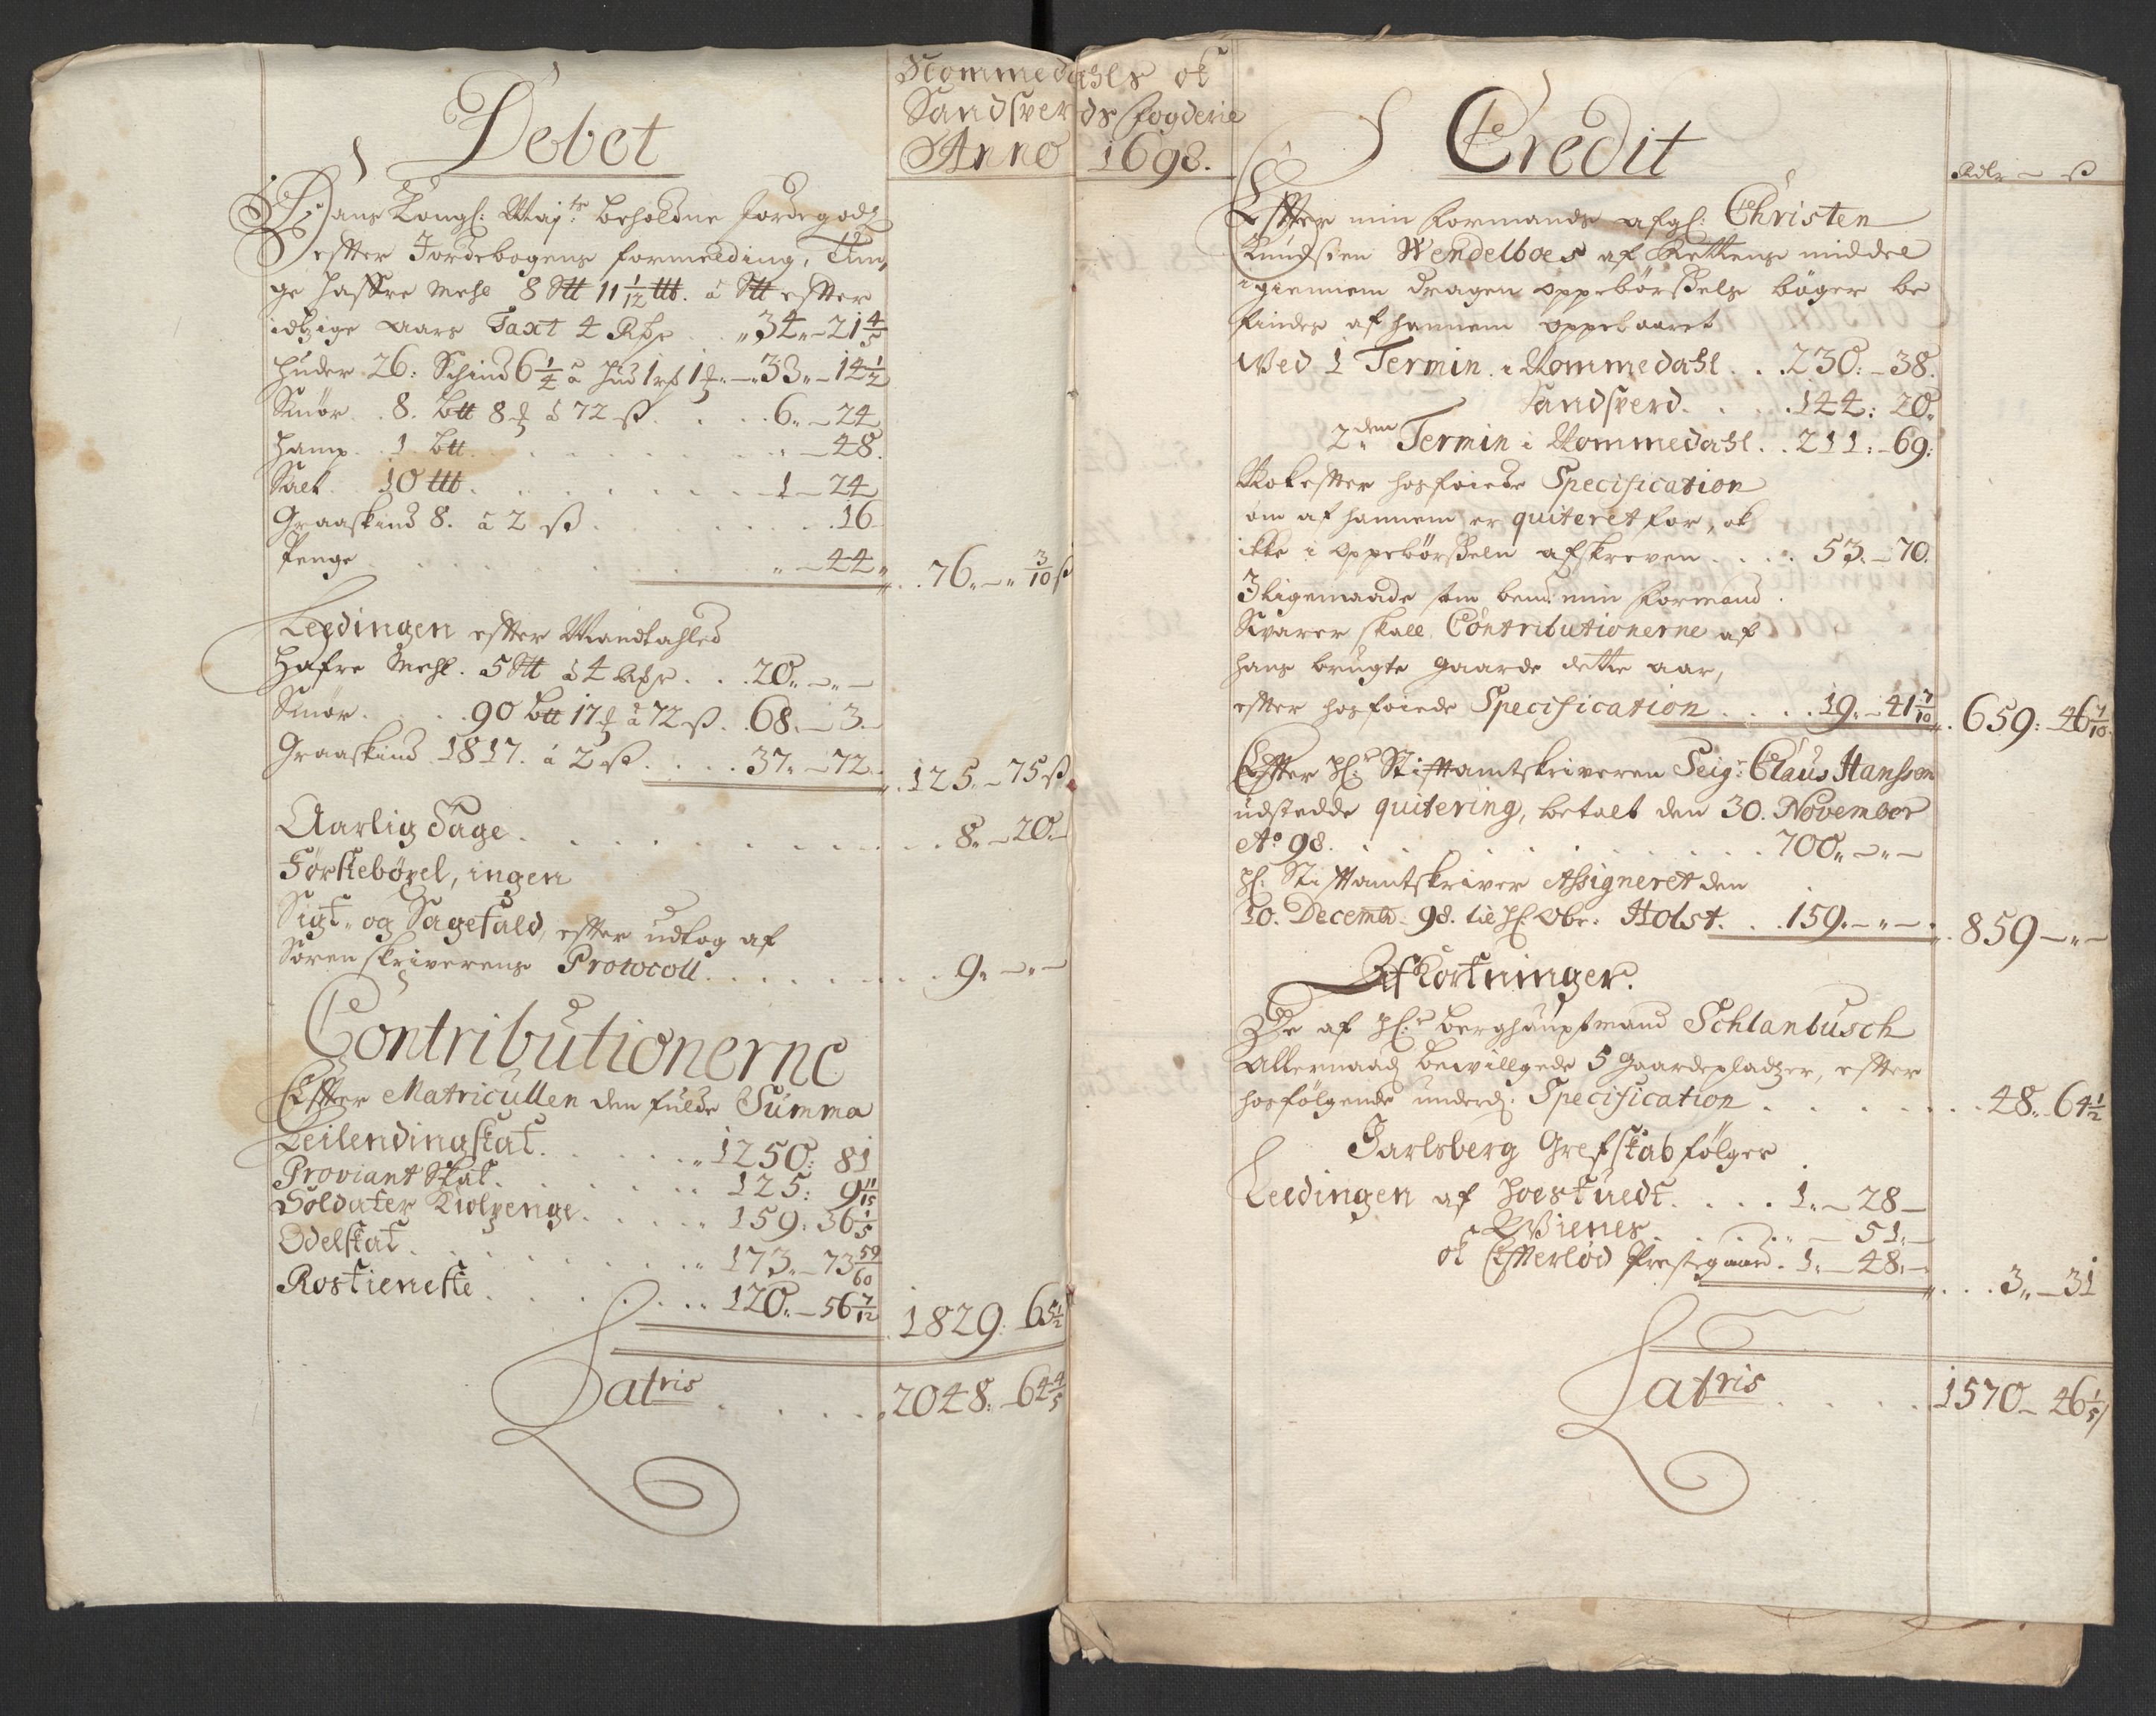 Debet
Nommedahls ok
Sandsverds fogderie
Anno 1698.
Hans Kongl: Maj:ts beholdne Jordegodz
efter Jordebogens formelding, Tun,
ge haffre Mehl 8 Stt 11 1/12 ttt. á Stt efter
idtzige aars Taxt 4 Rdr .. 34.-21 4/5
huder 26: Schind 6 1/4 á hud .. 33.-14 1/2
Smör . . 8. btt 8 á 72 ß . . . 6.-24
Hamp . . 1. btt . . . -48.
Salt . 10 ttt . . . 1-24
Graaskind 8. á 2 ß . . . 16
Penge . . . -44 . . 76.-.. 3/10 ß
Leedingen efter Mandtahled
Hafre Mehl. 5 Stt á 4 Rdr . . 20.-..-
Smör . . . 90 btt 17 á 72 ß . 68.-3.-
Graaskind 1817. á 2 ß . . . 37.-72. . 125.-75 ß
Aarlig Sage . . . 8.-20.-
Førstebøxel, ingen
Sigt- og Sagefald, efter udtog af
Sorenskriverens Protocoll . . . 9.-..-
Contributionerne
Effter Matricullen den fulde Summa
Leilendingskat . . . 1250: 81
Proviant Skat . . . 125: 9 11/15
Soldater Kiolpenge . . . 159: 36 1/5
Odelskat . . . 173.-73 59/60
Rostieneste . . . 120.-56 7/12 1829. 65 1/2
Latris . . . 2048.-64 4/5
Credit
Rdlr - ß
Effter min formands afgl: Christen
Knudsen Wendelboes af Rettens middel
igiennem dragen oppebörsels böger be
findes af hannem oppebaaret
Ved 1 Termin i Nommedahl . . 230:-38.
Sandsverd . . . 144: 20.
2den Termin i Nommedahl . . 211:-69:
Nok efter hosføiede Specification
om af hannem er quiteret for, ok
ikke i oppebörselen afskreven . . . 53.-70.
Iligemaade som bem:te min formand
Svarer skall Contributionerne af
hans brugte gaarde dette aar,
efter hosføiede Specification . . . 19.-41 7/10 . 659:-46 7/10
Effter Hr: Stiftamtskriveren Seigr: Claus Hanssen
udstedde quitering, betalt den 30. November
Ao 98. . . . 700.-..-
Hr: Stiftamtskriver Assigneret den
10. Decembr. 98. til Hr Obr: Holst . . 159.-..- . 859-..-
Afkortninger.
De af Hr: berghauptmand Schlanbusch
Allernaad: bevillgede 5 Gaardepladzer, efter
hosfölgende underd: Specification . . . 48.-64 1/2
Jarlsberg Grefskab følger
Leedingen af Hoestuedt . . . 1.-28-
Wienes . . . -51.-
ok Efterlød Prestegaard . 1.-48.- . . . 3.-31
Latris . . . 1570-46 1/5